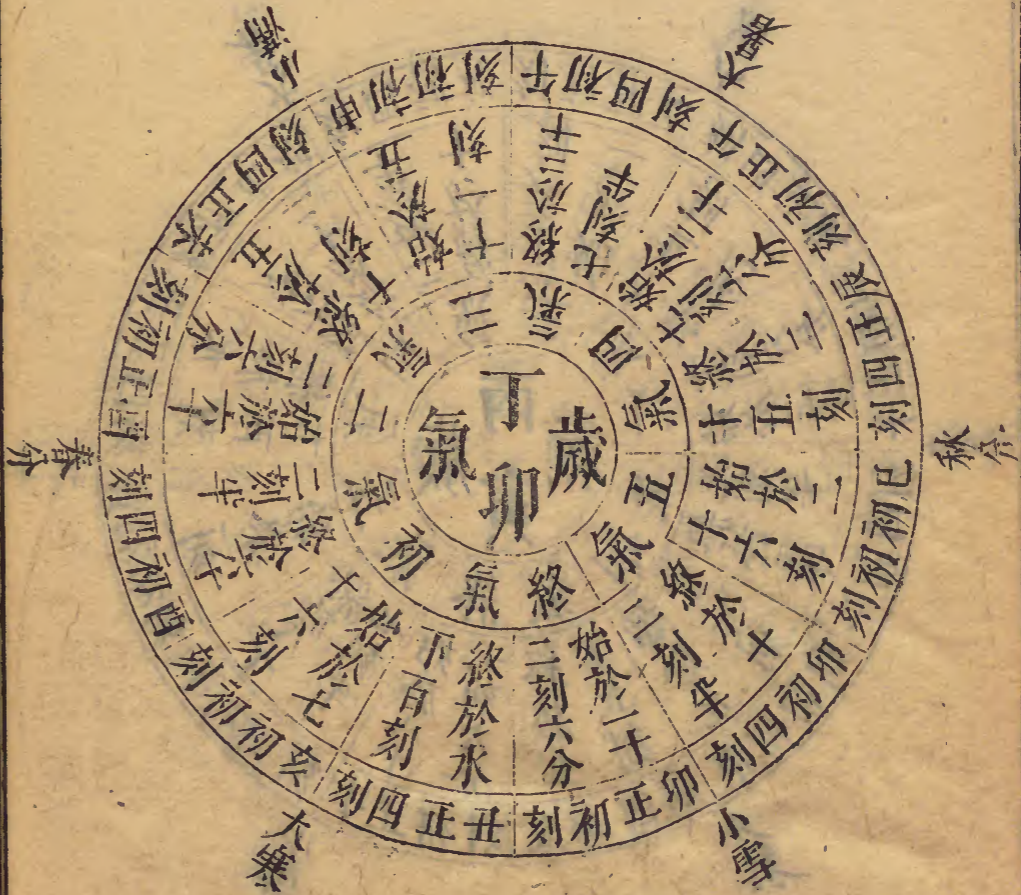 丁卯歲氣
初氣
二氣
三氣
四氣
五氣
終氣
始於七
十六刻
終於六十
二刻半
始於六十
二刻六分
終於五
十刻
始於五
十一刻
終於三十
七刻半
始於三十
七刻六分
終於二
十五刻
始於二
十六刻
終於十
二刻半
始於一十
二刻六分
終於水
下百刻
亥初初刻
酉初四刻
酉正初刻
未正四刻
申初初刻
午初四刻
午正初刻
辰正四刻
巳初初刻
卯初四刻
卯正初刻
丑正四刻
大寒
春分
小滿
大暑
秋分
小雪